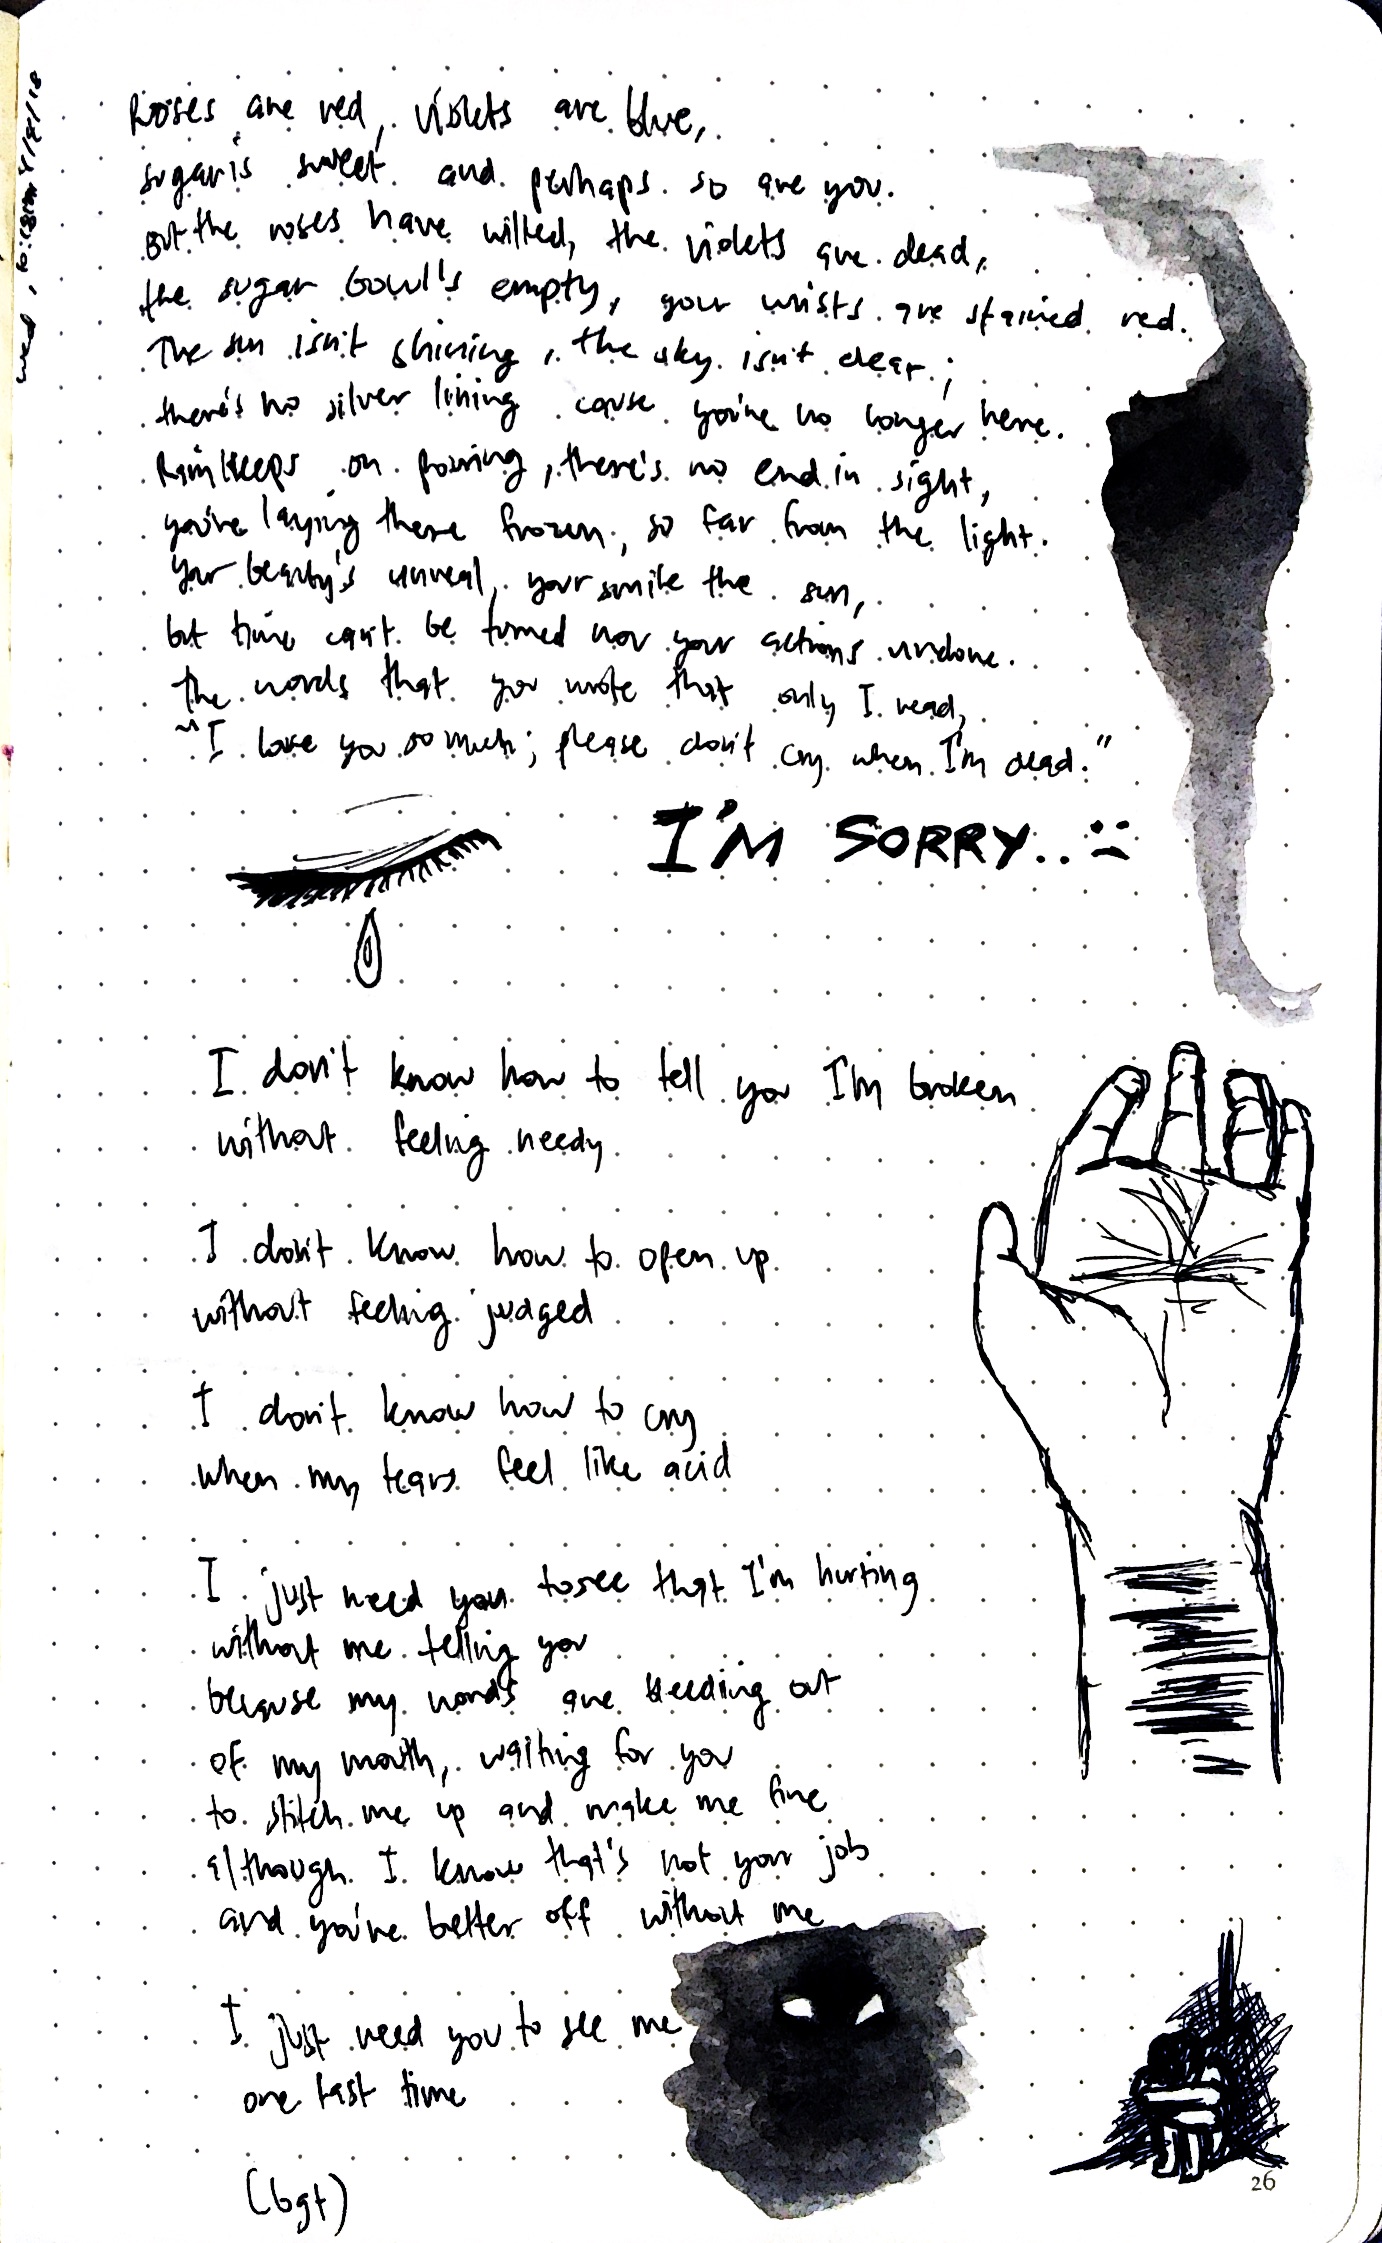 wed, 10:18pm 4/18/18
Roses are red, violets are blue,
sugar is sweet and perhaps so are you.
But the roses have wilted, the violets are dead,
the sugar bowl's empty, your wrists are stained red.
The sun isn't shining, the sky isn't clear;
there's no silver lining cause you're no longer here.
Rain keeps on pouring, there's no end in sight,
you're laying there frozen, so far from the light.
Your beauty's unreal, your smile the sun,
but time can't be turned nor your actions undone.
The words that you wrote that only I read,
"I love you so much; please don't cry when I'm dead."
I'M SORRY.. :(
I don't know how to tell you I'm broken
without feeling needy
I don't know how to open up
without feeling judged
I don't know how to cry
when my tears feel like acid
I just need you to see that I'm hurting
without me telling you
because my words are bleeding out
of my mouth, waiting for you
to stitch me up and make me fine
although I know that's not your job
and you're better off without me
I just need you to see me
one last time
(bgt)
26